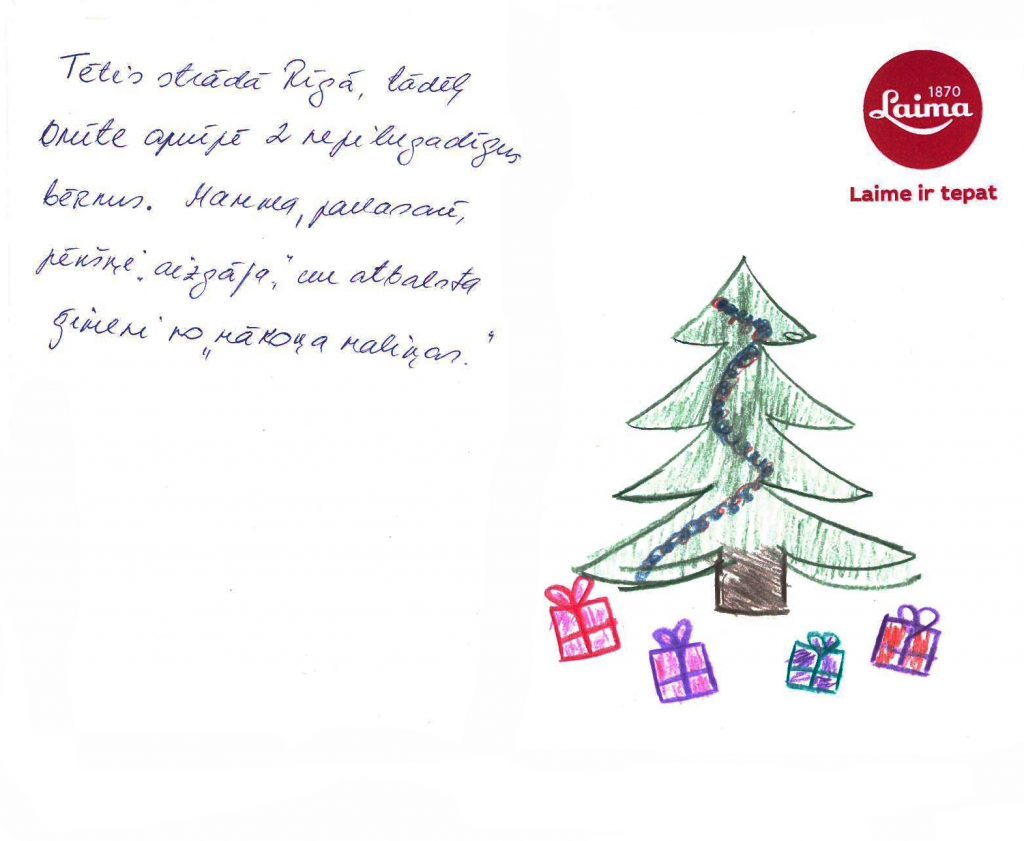 Tētis strādā Rīgā, tādēļ
Omīte aprūpē 2 nepilngadīgus
bērnus. Mamma, pavasarī,
pēkšņi „aizgāja," un atbalsta
ģimeni no „mākoņa maliņas."
1870
Laima
Laime ir tepat